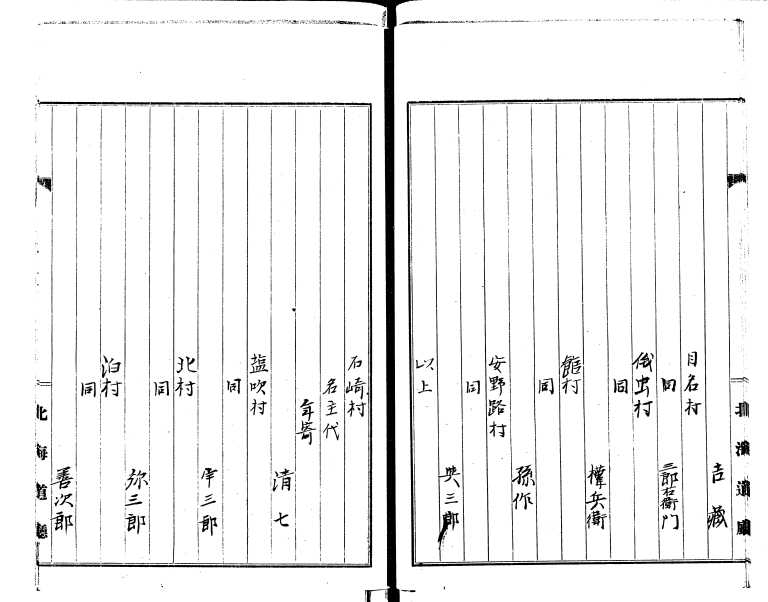 吉藏
目名村
同
三郎右衛門
俄虫村
同
權兵衛
館村
同
孫作
安野路村
同
與三郎
以上
石崎村
名主代
年寄
清七
塩吹村
同
幸三郎
北村
同
弥三郎
泊村
同
善次郎
北海道廳
北海道廳